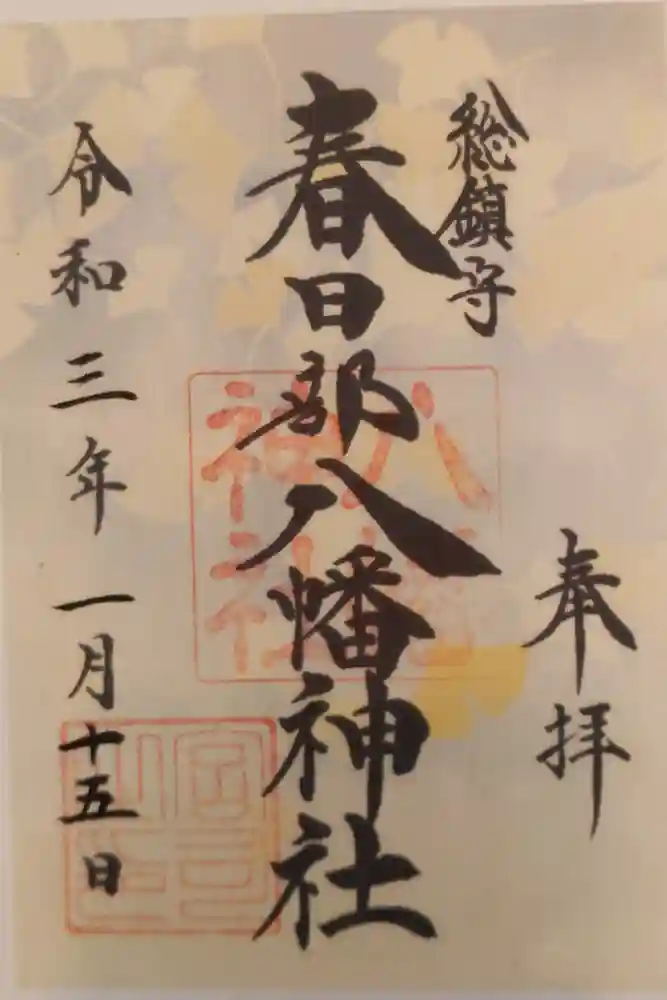 奉拝
総鎮守
春日部八幡神社
八幡
神社
令和三年一月十五日